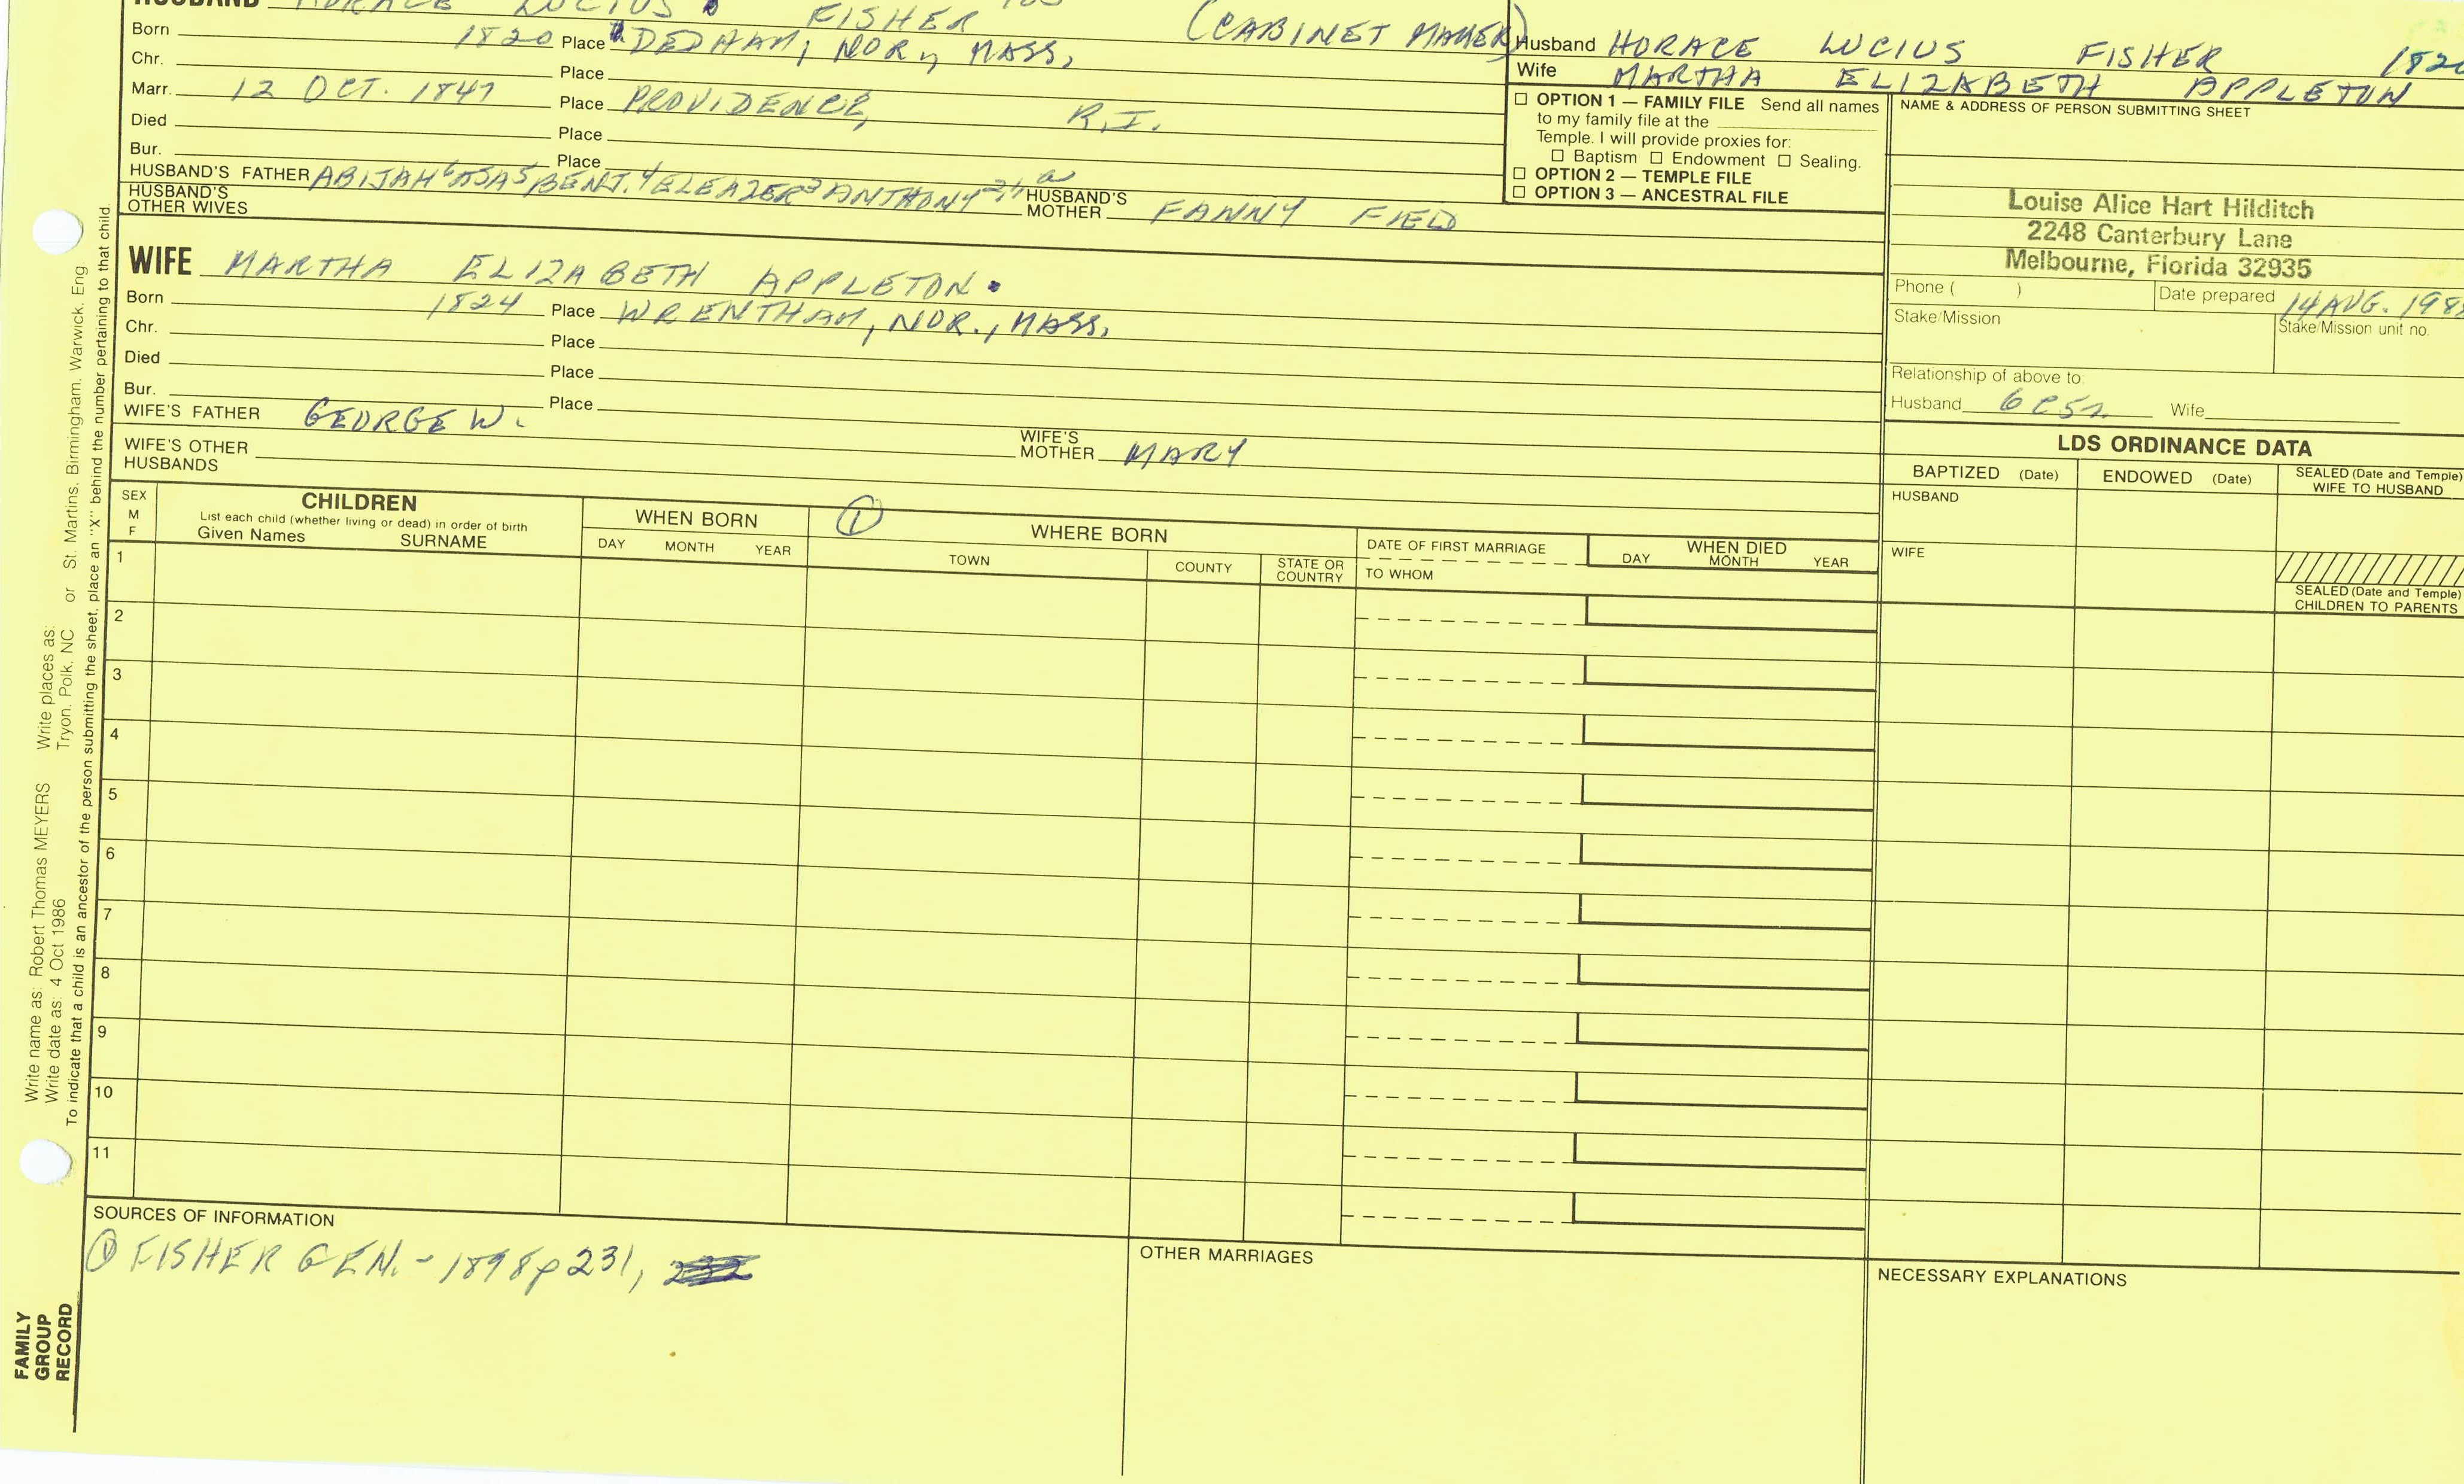 HUSBAND HORACE LUCIUS FISHER
(CABINET MAKER)
Born 1820 Place DEDHAM, NOR, MASS,
Chr. Place
Marr. 12 OCT. 1847 Place PROVIDENCE, R.I.
Died Place
Bur. Place
HUSBAND'S FATHER ABIJAH 6 ASA 5 BENJ. 4 ELEAZER 3 ANTHONY HUSBAND'S MOTHER FANNY FIED
HUSBAND'S OTHER WIVES
WIFE MARTHA ELIZABETH APPLETON
Born 1824 Place WRENTHAM, NOR., MASS,
Chr. Place
Died Place
Bur. Place
WIFE'S FATHER GEORGE W. WIFE'S MOTHER MARY
WIFE'S OTHER HUSBANDS
Husband HORACE LUCIUS FISHER 1820
Wife MARTHA ELIZABETH APPLETON
☐ OPTION 1 — FAMILY FILE Send all names
to my family file at the
Temple. I will provide proxies for:
☐ Baptism ☐ Endowment ☐ Sealing.
☐ OPTION 2 — TEMPLE FILE
☐ OPTION 3 — ANCESTRAL FILE
NAME & ADDRESS OF PERSON SUBMITTING SHEET
Louise Alice Hart Hilditch
2248 Canterbury Lane
Melbourne, Florida 32935
Phone ( ) Date prepared 14 AUG. 198
Stake/Mission Stake/Mission unit no.
Relationship of above to:
Husband 6C5R Wife
LDS ORDINANCE DATA
BAPTIZED (Date) ENDOWED (Date) SEALED (Date and Temple)
WIFE TO HUSBAND
HUSBAND
WIFE
SEALED (Date and Temple)
CHILDREN TO PARENTS
SEX
M
F
CHILDREN
List each child (whether living or dead) in order of birth
Given Names SURNAME
WHEN BORN
DAY MONTH YEAR
① WHERE BORN
TOWN COUNTY STATE OR COUNTRY
DATE OF FIRST MARRIAGE
TO WHOM
WHEN DIED
DAY MONTH YEAR
1
2
3
4
5
6
7
8
9
10
11
SOURCES OF INFORMATION
① FISHER GEN. - 1898 p 231,
OTHER MARRIAGES
NECESSARY EXPLANATIONS
Write name as: Robert Thomas MEYERS Write places as: or St. Martins, Birmingham, Warwick, Eng.
Write date as: 4 Oct 1986 Tryon, Polk, NC
To indicate that a child is an ancestor of the person submitting the sheet, place an "X" behind the number pertaining to that child.
FAMILY
GROUP
RECORD